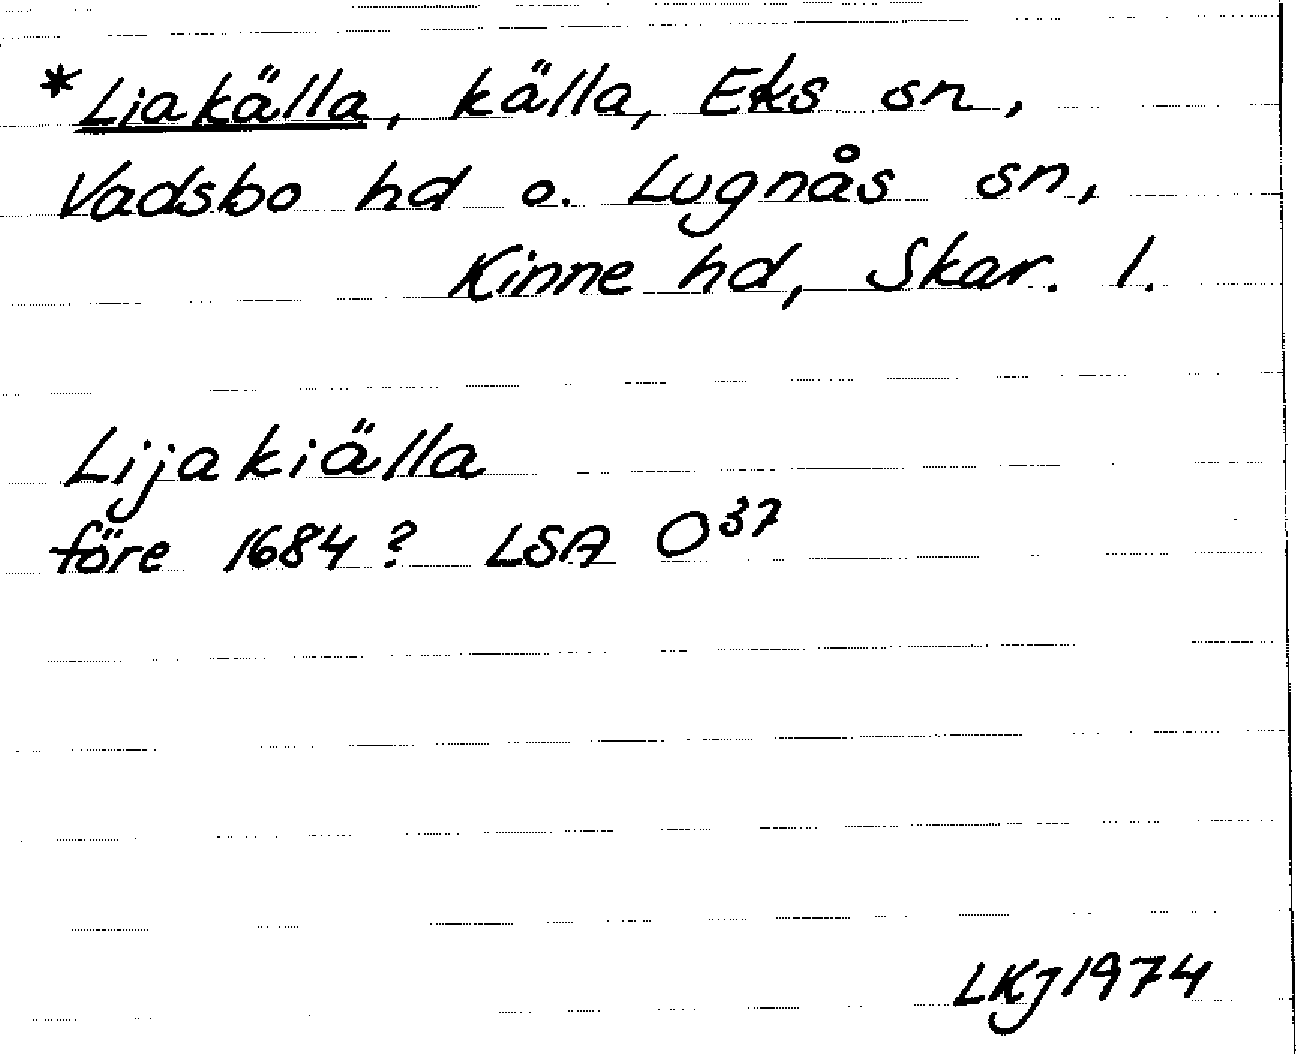 *Liakälla, källa, Eks sn,
Vadsbo hd o. Lugnås sn,
Kinne hd, Skar. l.
Lijakiälla
före 1684? LSA O³⁷
LKJ1974